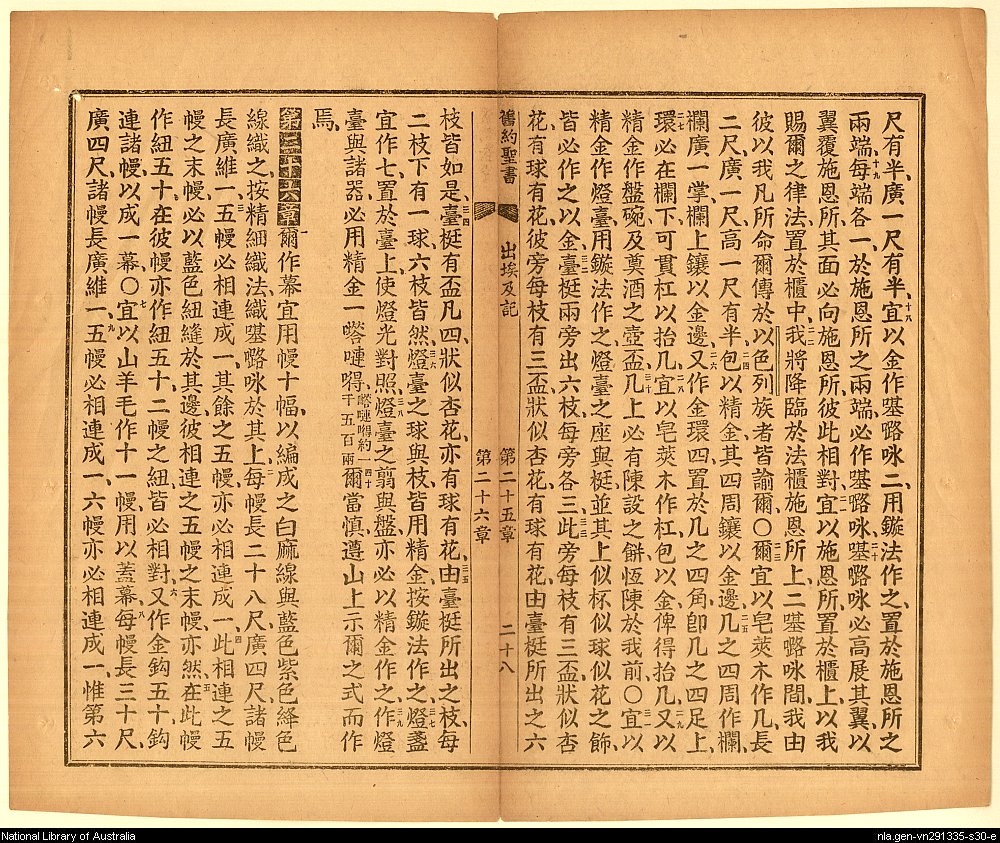 尺有半、廣一尺有半、十八宜以金作𠼻𡀔㖇二、用鏇法作之、置於施恩所之
兩端、十九每端各一、於施恩所之兩端、必作𠼻𡀔㖇、二十𠼻𡀔㖇必高展其翼、以
翼覆施恩所、其面必向施恩所、彼此相對、二一宜以施恩所置於櫃上、以我
賜爾之律法置於櫃中、二二我將降臨於法櫃施恩所上、二𠼻𡀔㖇間、我由
彼以我凡所命爾傳於以色列族者皆諭爾、〇二三爾宜以皂莢木作几、長
二尺、廣一尺、高一尺有半、二四包以精金、其四周鑲以金邊、二五几之四周作欄、
欄廣一掌、欄上鑲以金邊、二六又作金環四、置於几之四角、卽几之四足上、
二七環必在欄下、可貫杠以抬几、二八宜以皂莢木作杠、包以金、俾得抬几、二九又以
精金作盤碗及奠酒之壺盃、三十几上必有陳設之餅、恆陳於我前、〇三一宜以
精金作燈臺、用鏇法作之、燈臺之座與梃、並其上似杯似球似花之飾、
皆必作之以金、三二臺梃兩旁出六枝、每旁各三、三三此旁每枝有三盃、狀似杏
花、有球有花、彼旁每枝有三盃、狀似杏花、有球有花、由臺梃所出之六
舊約聖書 出埃及記 第二十五章 二十八
第二十六章
枝皆如是、三四臺梃有盃凡四、狀似杏花、亦有球有花、三五由臺梃所出之枝、每
二枝下有一球、六枝皆然、三六燈臺之球與枝、皆用精金按鏇法作之、三七燈盞
宜作七、置於臺上、使燈光對照、三八燈臺之翦與盤、亦必以精金作之、三九作燈
臺與諸器、必用精金一㗳嗹嘚、㗳嗹嘚約一千五百兩四十爾當慎遵山上示爾之式而作
焉、
第二十六章一爾作幕、宜用幔十幅、以編成之白麻線與藍色紫色絳色
線織之、按精細織法、織𠼻𡀔㖇於其上、二每幔長二十八尺、廣四尺、諸幔
長廣維一、三五幔必相連成一、其餘之五幔亦必相連成一、四此相連之五
幔之末幔、必以藍色紐縫於其邊、彼相連之五幔之末幔亦然、五在此幔
作紐五十、在彼幔亦作紐五十、二幔之紐皆必相對、六又作金鈎五十、鈎
連諸幔、以成一幕、〇七宜以山羊毛作十一幔、用以蓋幕、八每幔長三十尺、
廣四尺、諸幔長廣維一、九五幔必相連成一、六幔亦必相連成一、惟第六